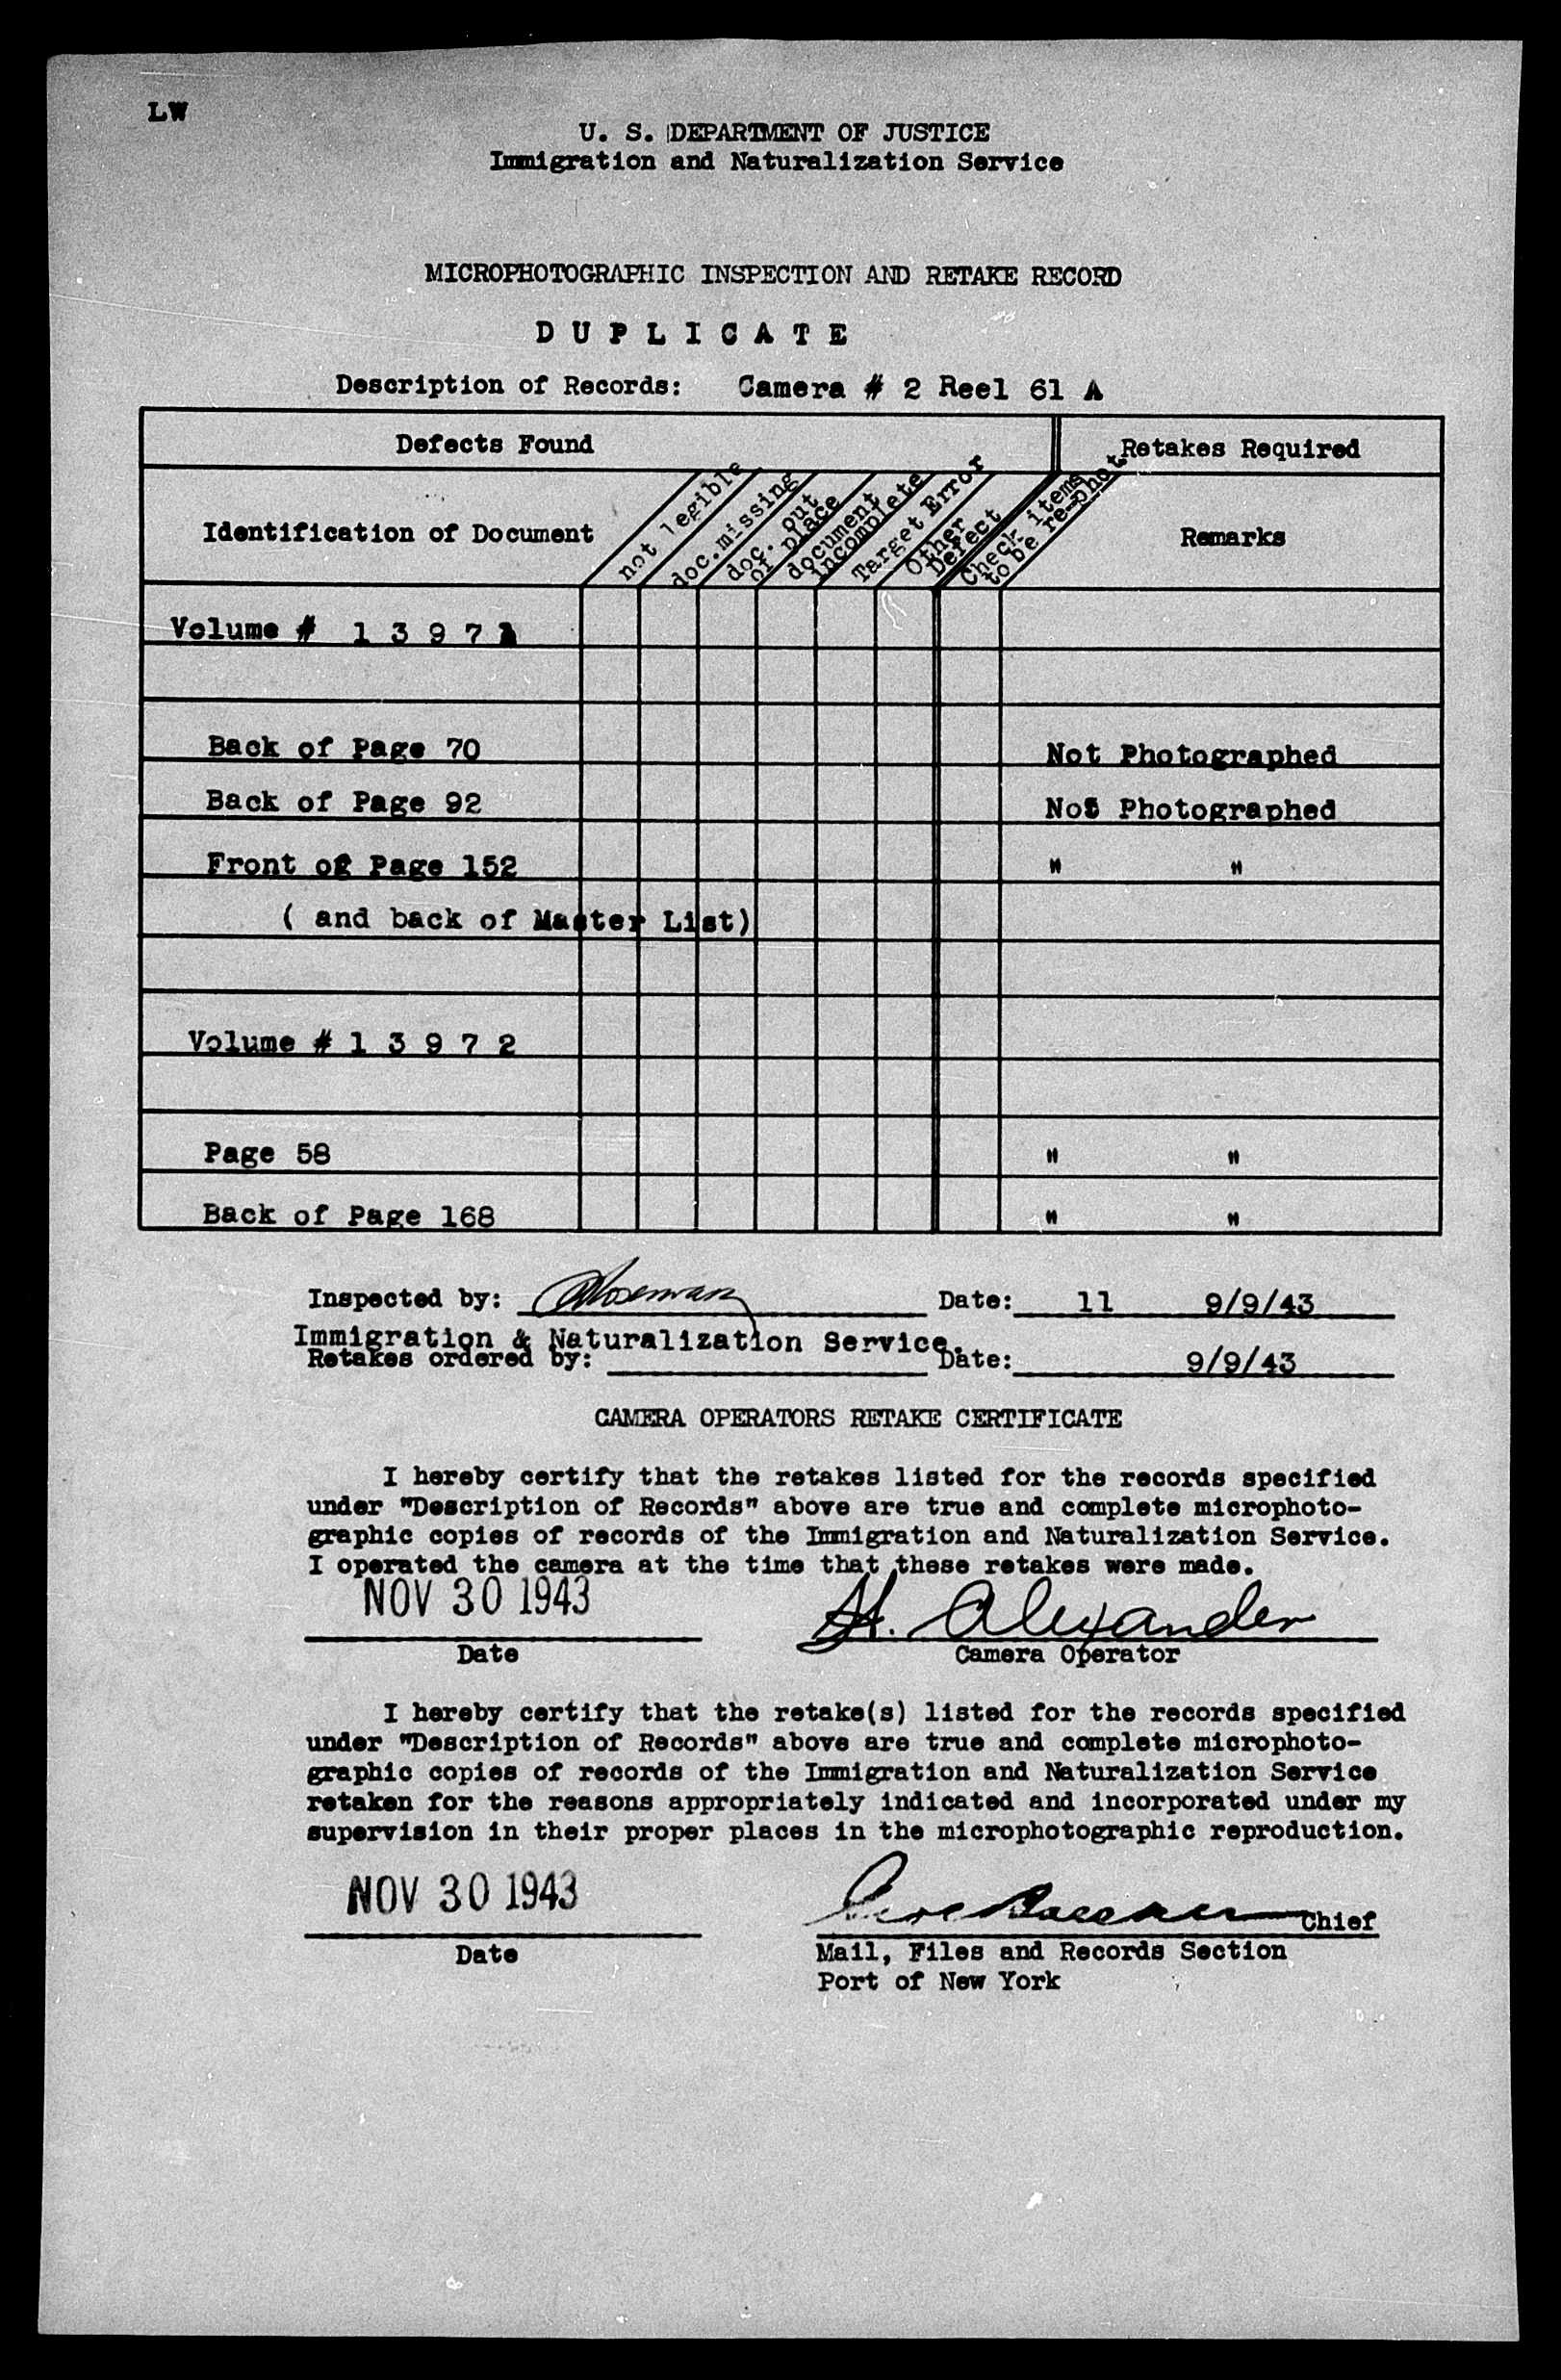 LW
U. S. DEPARTMENT OF JUSTICE
Immigration and Naturalization Service
MICROPHOTOGRAPHIC INSPECTION AND RETAKE RECORD
D U P L I C A T E
Description of Records: Camera # 2 Reel 61 A
Defects Found
Retakes Required
Identification of Document
not legible
doc. missing
doc. out
of place
document
incomplete
Target Error
Other
Defect
Check items
to be re-phot.
Remarks
Volume # 1 3 9 7 1
Back of Page 70 Not Photographed
Back of Page 92 Not Photographed
Front of Page 152 " "
( and back of Master List)
Volume # 1 3 9 7 2
Page 58 " "
Back of Page 168 " "
Inspected by: Date: 11 9/9/43
Immigration & Naturalization Service.
Retakes ordered by: Date: 9/9/43
CAMERA OPERATORS RETAKE CERTIFICATE
I hereby certify that the retakes listed for the records specified
under "Description of Records" above are true and complete microphoto-
graphic copies of records of the Immigration and Naturalization Service.
I operated the camera at the time that these retakes were made.
NOV 30 1943 H. Alexander
Date Camera Operator
I hereby certify that the retake(s) listed for the records specified
under "Description of Records" above are true and complete microphoto-
graphic copies of records of the Immigration and Naturalization Service
retaken for the reasons appropriately indicated and incorporated under my
supervision in their proper places in the microphotographic reproduction.
NOV 30 1943 Chief
Date Mail, Files and Records Section
Port of New York